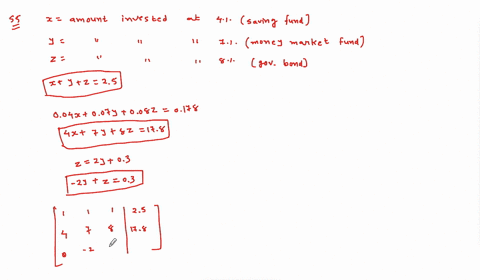 55 x = amount invested at 4.1. (saving fund)
y = " " " 7.1. (money market fund)
z = " " " 8% (gov. bond)
x+y+z = 2.5
0.04x + 0.07y + 0.08z = 0.178
4x + 7y + 8z = 17.8
z = 2y + 0.3
-2y + z = 0.3
1 1 1 2.5
4 7 8 17.8
0 -2